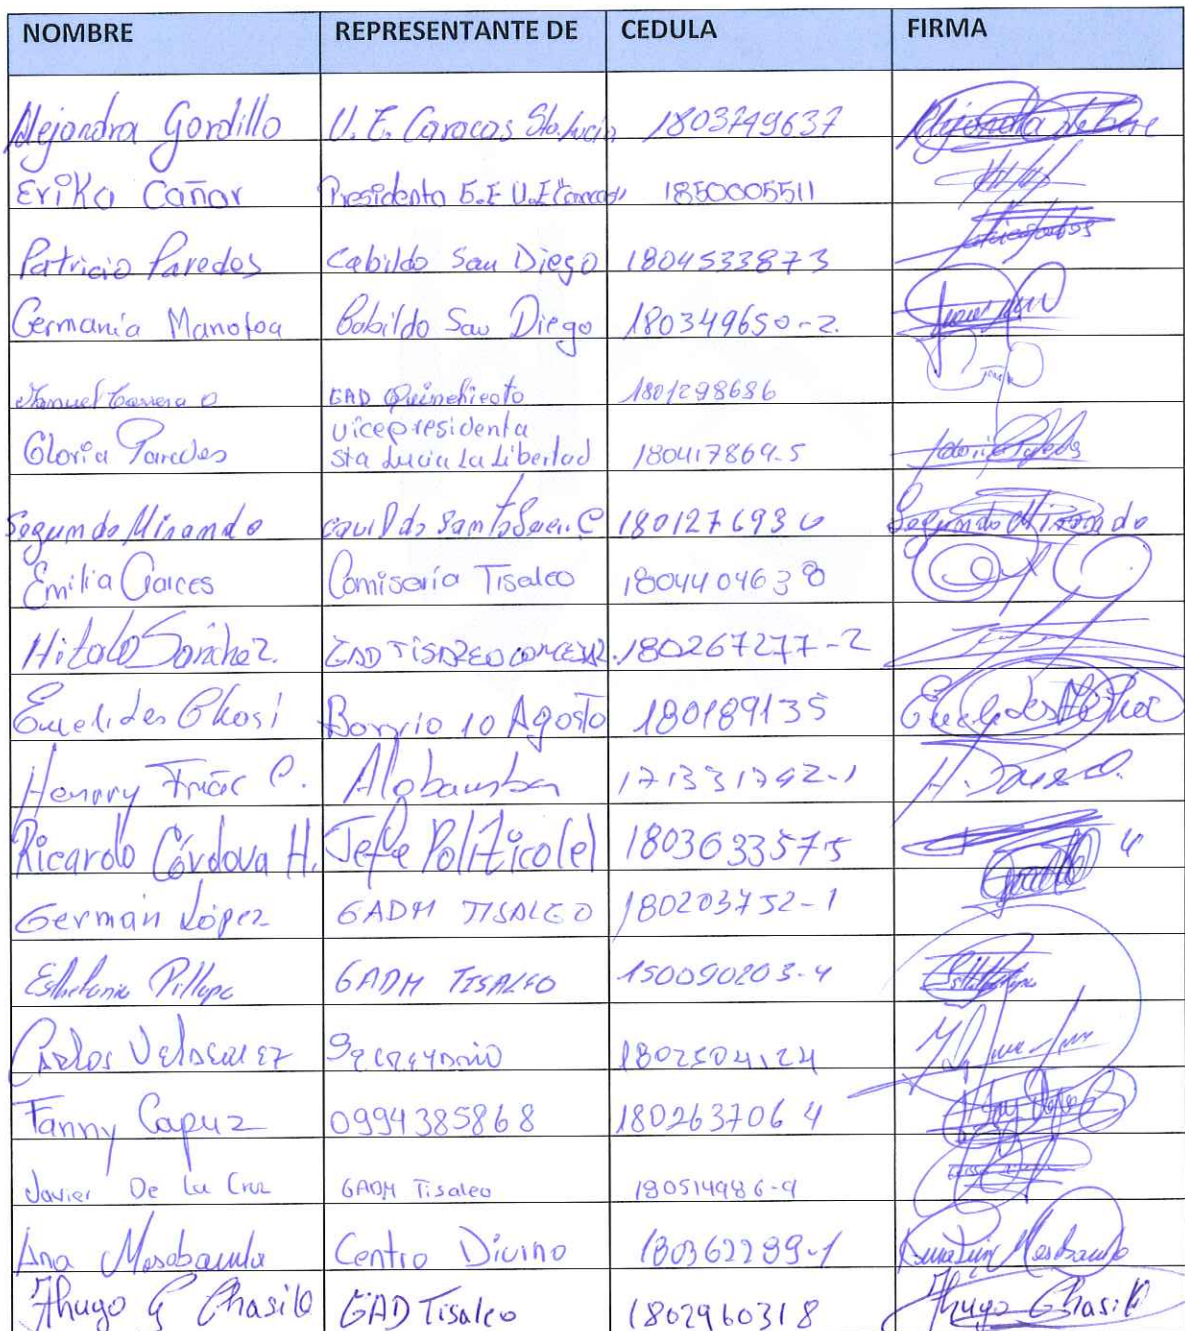 NOMBRE REPRESENTANTE DE CEDULA FIRMA
Alejandra Gordillo U.E. Caracas Sta. Lucia 1803749637
Erika Cañar Presidenta G.E U.E "Caracas" 1850005511
Patricio Paredes Cabildo San Diego 1804533873
Germania Manotoa Cabildo San Diego 180349650-2
Manuel GAD Quinchicoto 1801298686
Gloria Paredes vicepresidenta
Sta Lucia La Libertad 180417869-5
Segundo Mirando 180127693 Segundo Mirando
Emilia Garces Comisaría Tisaleo 1804404638
Hitalo Sánchez. GAD TISALEO CONCEJAL. 180267277-2
Euclides Chosi Barrio 10 Agosto 180189135
Henrry Frías C. Alobamba 171331792-1
Ricardo Córdova H. Jefe Político (e) 1803633575
Germán López GADM TISALEO 180203752-1
Esthefania Pillapa GADM TISALEO 150090203-4
Carlos Velascuez Secretario
Fanny Capuz 0994385868 180263706 4
Javier De La Cruz GADM Tisaleo 180514986-9
Ana Masabanda Centro Divino 180362289-1
Thugo G Chasi GAD Tisaleo 1802960318 Thugo Chasi